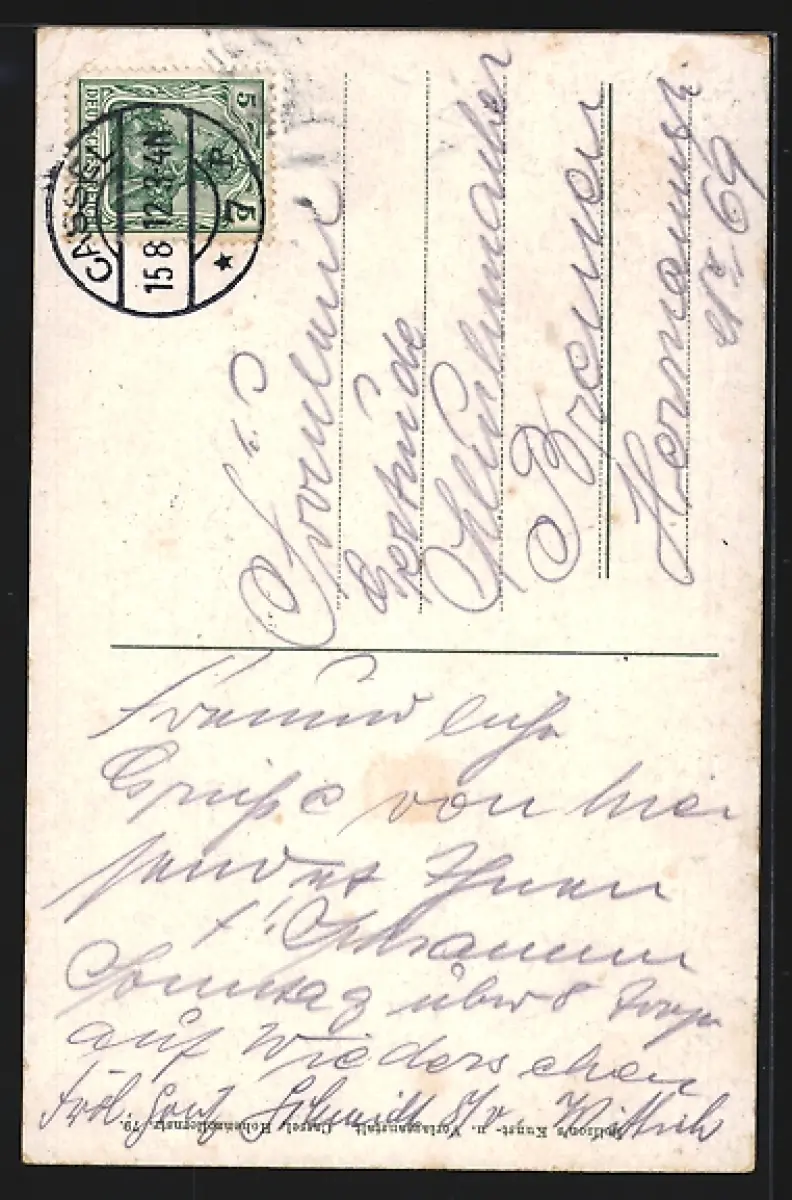 DEUTSCHES REICH
5
CASSEL
15.8.12.3-4N
*7g
Fräulein
Gertrude
Schuhmacher
Bremen
Hermannstr.
No 69
Freundliche
Grüße von hier
sendet Ihnen
Schramm
Sonntag über 8 Tage
auf Wiedersehen
Frdl. Schmidt Wittich
Kunst- u. Verlagsanstalt, Cassel, Hohenzollernstr. 79.